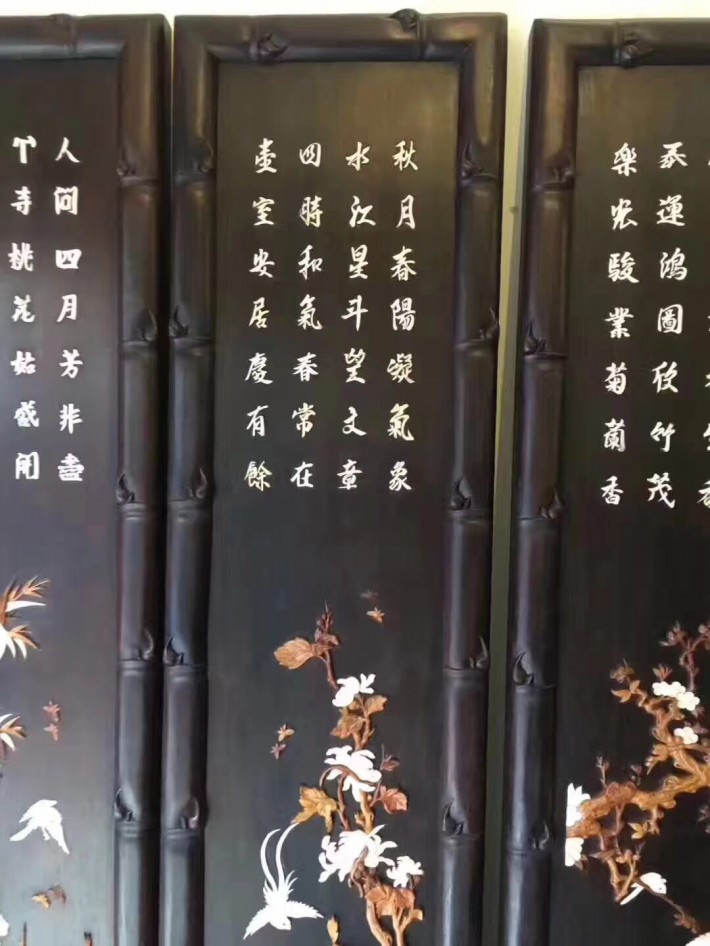 運鴻圖欣竹茂
樂駿業菊蘭香
秋月春陽凝氣象
水江星斗望文章
四時和氣春常在
壹室安居慶有餘
人问四月芳非盡
个寺桃花姑盛闬